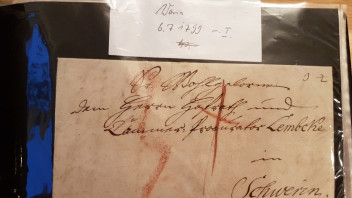 Warin
6.7 1799 – I
Sr Wohlgeboren
dem Herrn Hofrath und
Cammer Procurator Lembcke
in
Schwerin.